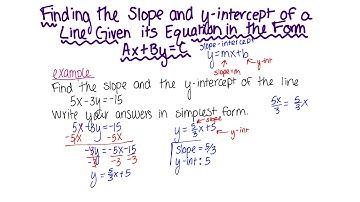 Finding the Slope and y-intercept of a
Line Given its Equation in the Form
Ax+By=C
slope-intercept
y=mx+b
slope=m
y-int
example
Find the slope and the y-intercept of the line
5x-3y=-15
Write your answers in simplest form.
5x-3y=-15
-5x -5x
-3y=-5x-15
-3 -3 -3
y=5/3x+5
slope
y=5/3x+5
y-int
slope=5/3
y-int: 5
5x/3 = 5/3x